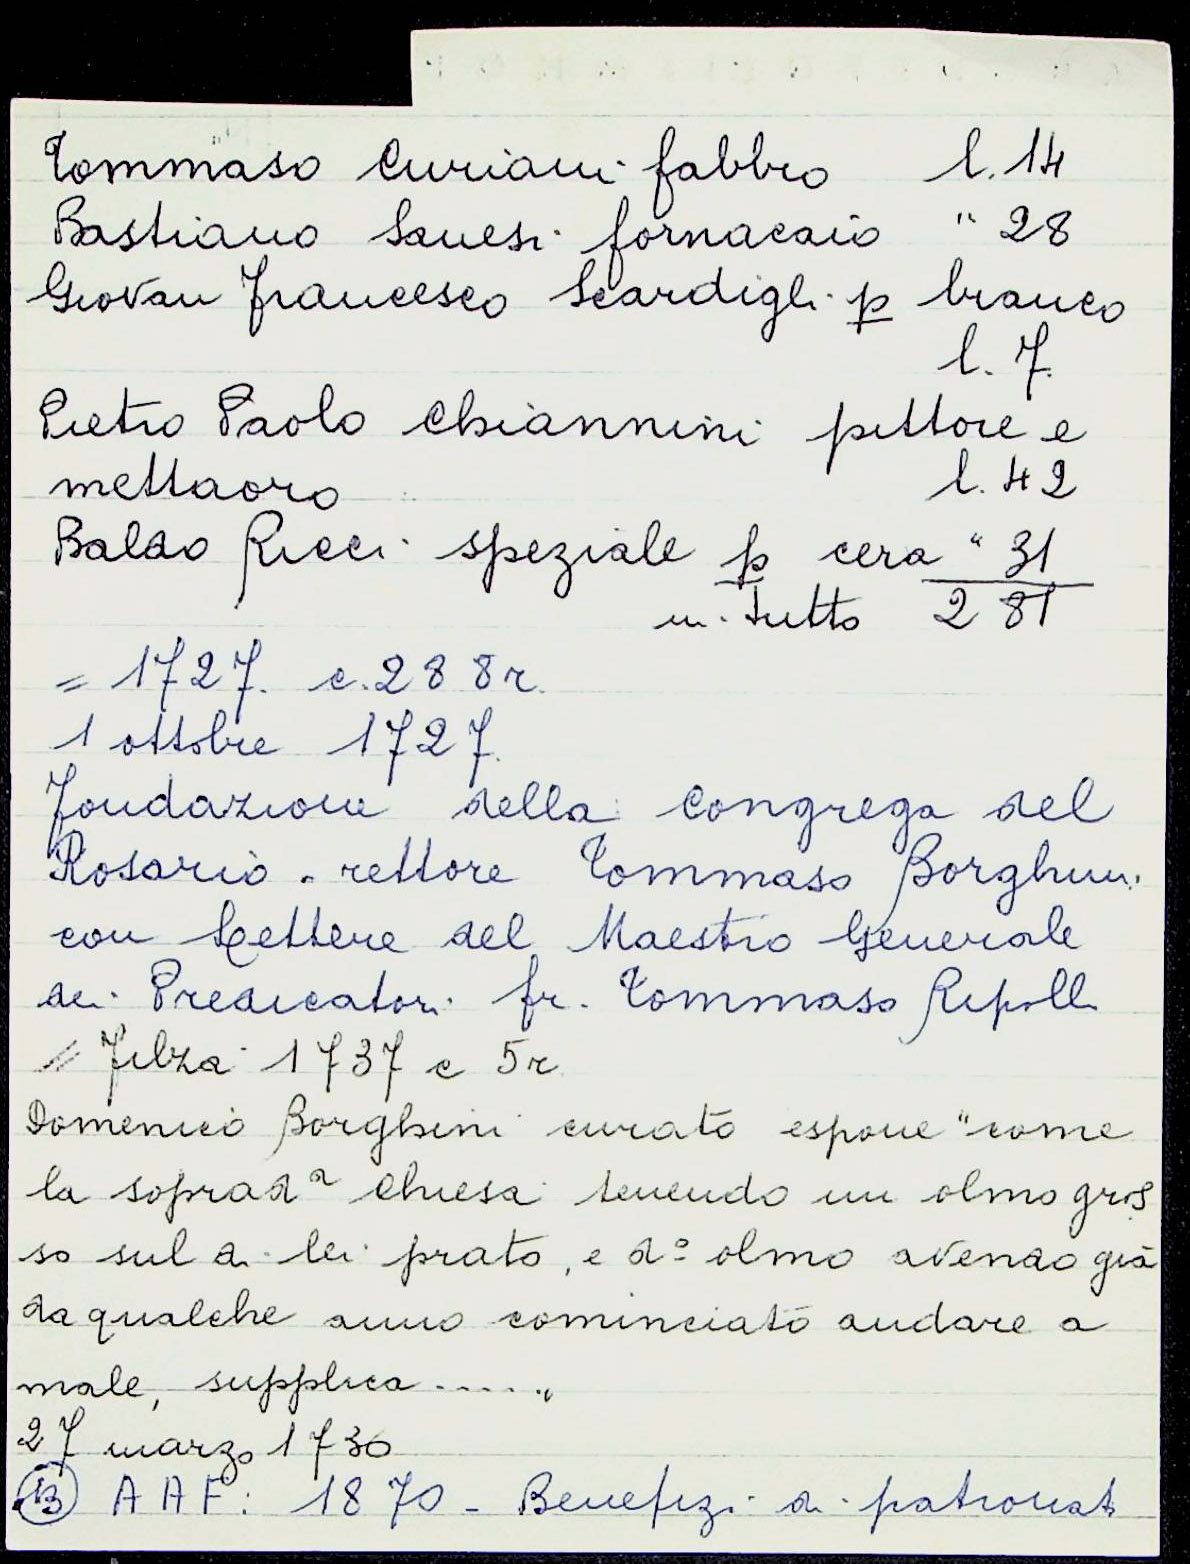 Tommaso Curiani fabbro l. 14
Bastiano Sanesi fornacaio " 28
Giovan Francesco Scardigli p branco
l. 7.
Pietro Paolo Chiannini pittore e
mettaoro l. 42
Baldo Ricci speziale p cera " 31
in tutto 281
= 1727. c. 288r.
1 ottobre 1727.
Fondazione della Congrega del
Rosario - rettore Tommaso Borghini
con Lettere del Maestro Generale
dei Predicatori fr. Tommaso Ripoll
= Filza 1737 c 5r
Domenico Borghini curato espone "come
la soprad.a Chiesa tenendo un olmo gros
so sul di lei prato, e d.o olmo avendo già
da qualche anno cominciato andare a
male, supplica ....."
27 marzo 1730
13 AAF: 1870 - Benefizi di patronat